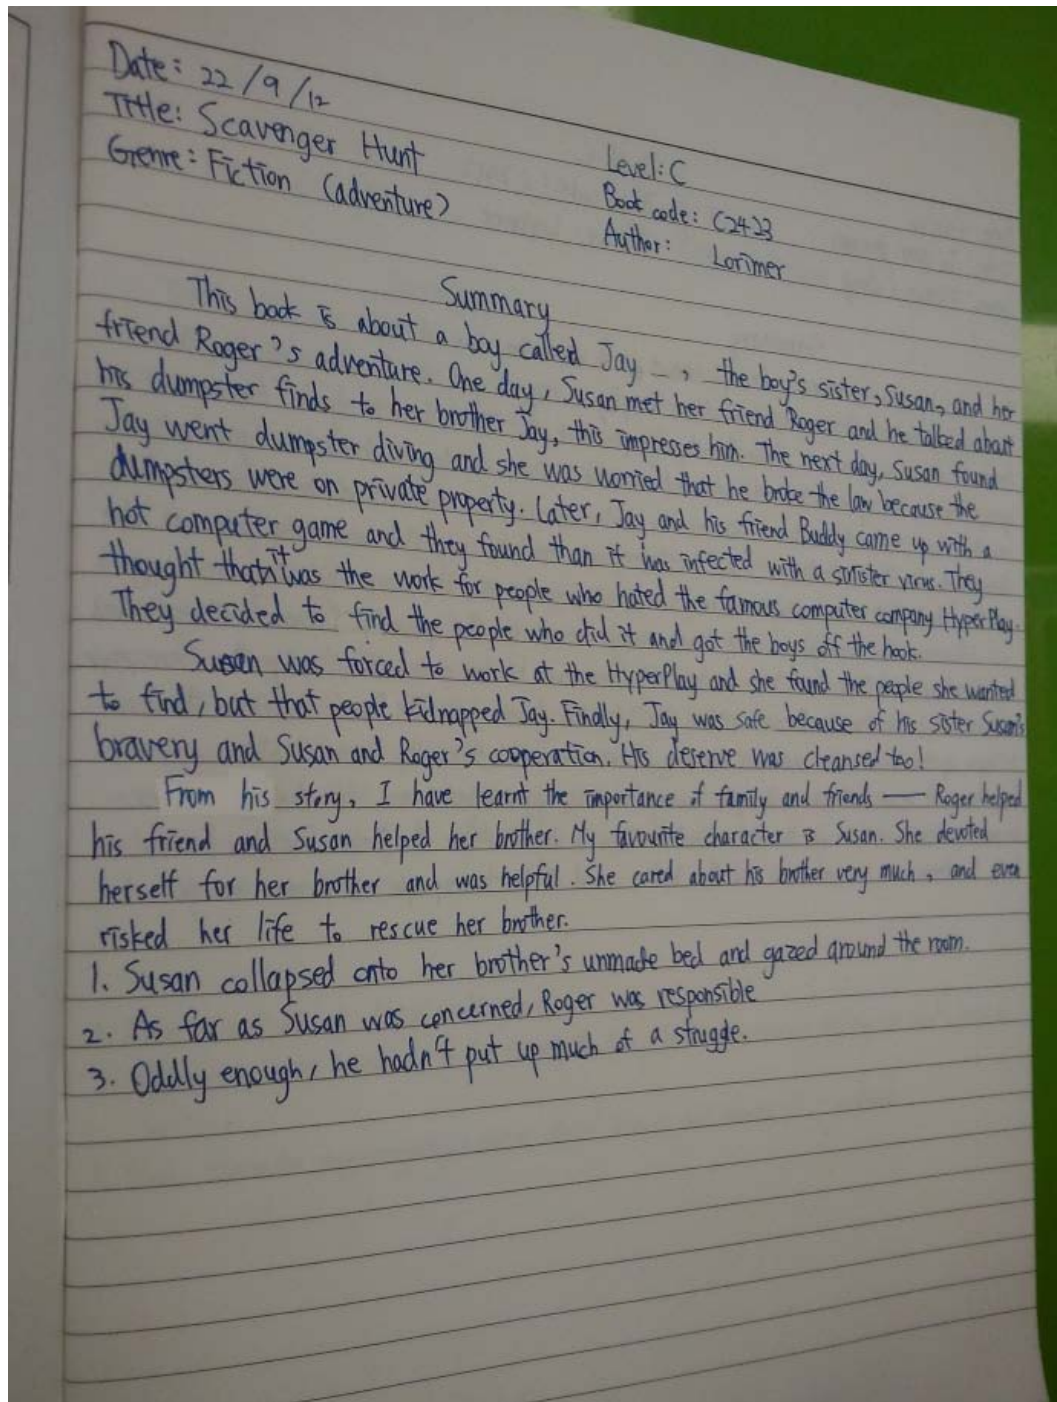 Date: 22/9/12
Title: Scavenger Hunt
Level: C
Genre: Fiction (adventure)
Book code: C2423
Author: Lorimer
Summary
This book is about a boy called Jay , the boy's sister, Susan, and her
friend Roger's adventure. One day, Susan met her friend Roger and he talked about
his dumpster finds to her brother Jay, this impresses him. The next day, Susan found
Jay went dumpster diving and she was worried that he broke the law because the
dumpsters were on private property. Later, Jay and his friend Buddy came up with a
hot computer game and they found than it was infected with a sinister virus. They
thought that it was the work for people who hated the famous computer company HyperPlay.
They decided to find the people who did it and got the boys off the hook.
Susan was forced to work at the HyperPlay and she found the people she wanted
to find, but that people kidnapped Jay. Finally, Jay was safe because of his sister Susan's
bravery and Susan and Roger's cooperation. His deserve was cleansed too!
From his story, I have learnt the importance of family and friends — Roger helped
his friend and Susan helped her brother. My favourite character is Susan. She devoted
herself for her brother and was helpful. She cared about his brother very much, and even
risked her life to rescue her brother.
1. Susan collapsed onto her brother's unmade bed and gazed around the room.
2. As far as Susan was concerned, Roger was responsible
3. Oddly enough, he hadn't put up much of a struggle.